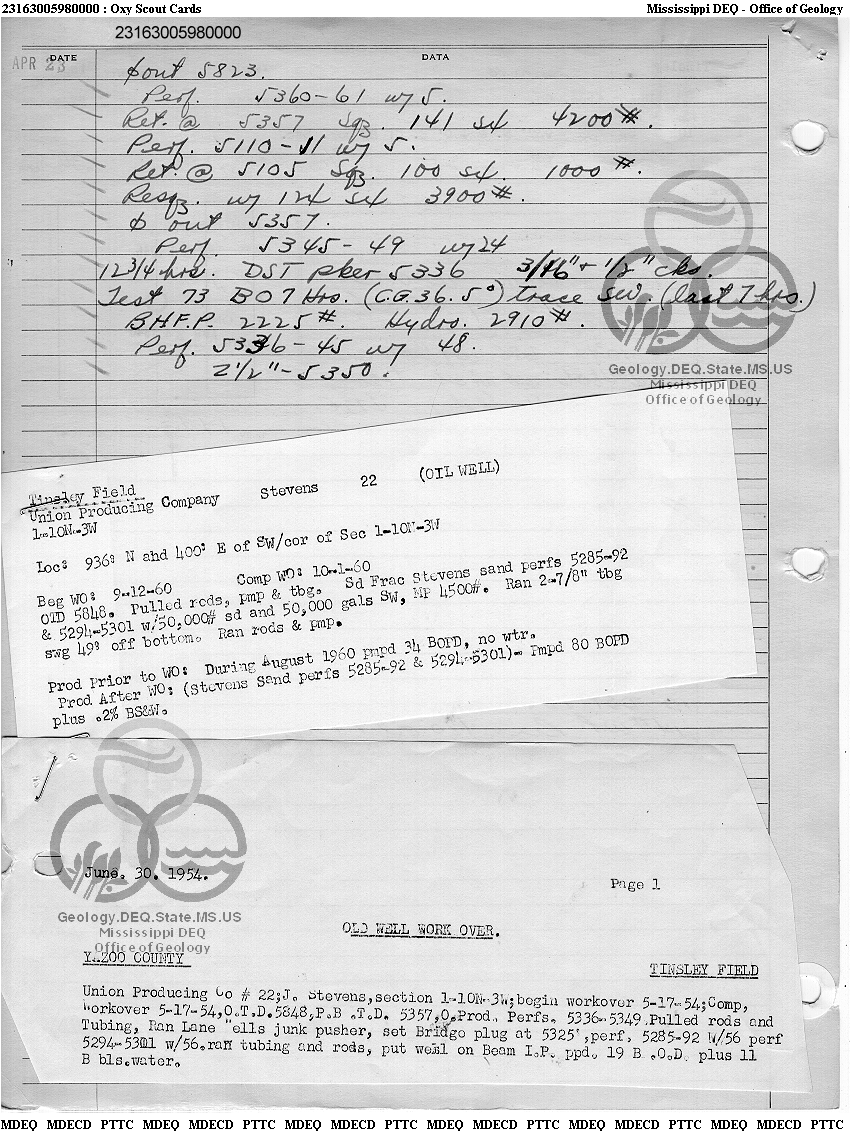 23163005980000 : Oxy Scout Cards
Mississippi DEQ - Office of Geology
23163005980000
DATE
DATA
APR 23
ϕ out 5823.
Perf. 5360-61 w/ 5.
Ret. @ 5357 Sqz. 141 sx 4200#.
Perf. 5110-11 w/ 5.
Ret. @ 5105 Sqz. 100 sx. 1000#.
Resqz. w/ 124 sx 3900#.
ϕ out 5357.
Perf. 5345-49 w/24
12 3/4 hrs. DST pker 5336 3/16" + 1/2" cks.
Test 73 BO 7 Hrs. (C.G. 36.5°) trace SW. (last 7 hrs.)
BHF.P. 2225#. Hydro. 2910#.
Perf. 5336-45 w/ 48.
2 1/2" - 5350.
Geology.DEQ.State.MS.US
Mississippi DEQ
Office of Geology
Tinsley Field
Union Producing Company Stevens 22 (OIL WELL)
1-10N-3W
Loc: 936' N ahd 400' E of SW/cor of Sec 1-10N-3W
Beg WO: 9-12-60 Comp WO: 10-1-60
OTD 5848. Pulled rods, pmp & tbg. Sd Frac Stevens sand perfs 5285-92
& 5294-5301 w/50,000# sd and 50,000 gals SW, MP 4500#. Ran 2-7/8" tbg
swg 49' off bottom. Ran rods & pmp.
Prod Prior to WO: During August 1960 pmpd 34 BOPD, no wtr.
Prod After WO: (Stevens Sand perfs 5285-92 & 5294-5301)- Pmpd 80 BOPD
plus .2% BS&W.
June. 30. 1954.
Page 1
Geology.DEQ.State.MS.US
Mississippi DEQ
Office of Geology
OLD WELL WORK OVER.
YAZOO COUNTY
TINSLEY FIELD
Union Producing Co # 22;J. Stevens,section 1-10N-3W;begin workover 5-17-54;Comp,
Workover 5-17-54,O.T.D.5848,P.B .T.D. 5357,O.Prod. Perfs. 5336-5349.Pulled rods and
Tubing, Ran Lane Wells junk pusher, set Bridge plug at 5325',perf. 5285-92 W/56 perf
5294-5301 w/56.ran tubing and rods, put well on Beam I.P. ppd. 19 B .O.D. plus 11
B bls.water.
MDEQ MDECD PTTC MDEQ MDECD PTTC MDEQ MDECD PTTC MDEQ MDECD PTTC MDEQ MDECD PTTC MDEQ MDECD PTTC